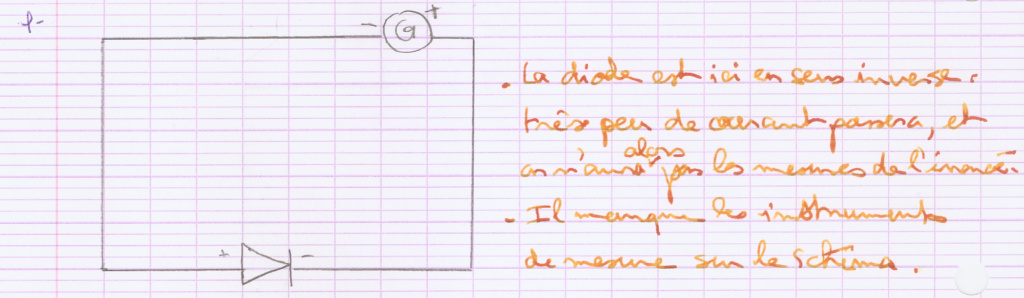 1-
- G +
. La diode est ici en sens inverse.
très peu de courant passera, et
alors
on n'aura pas les mesures de l'énoncé.
- Il manque les instruments
de mesure sur le schéma.
+ -